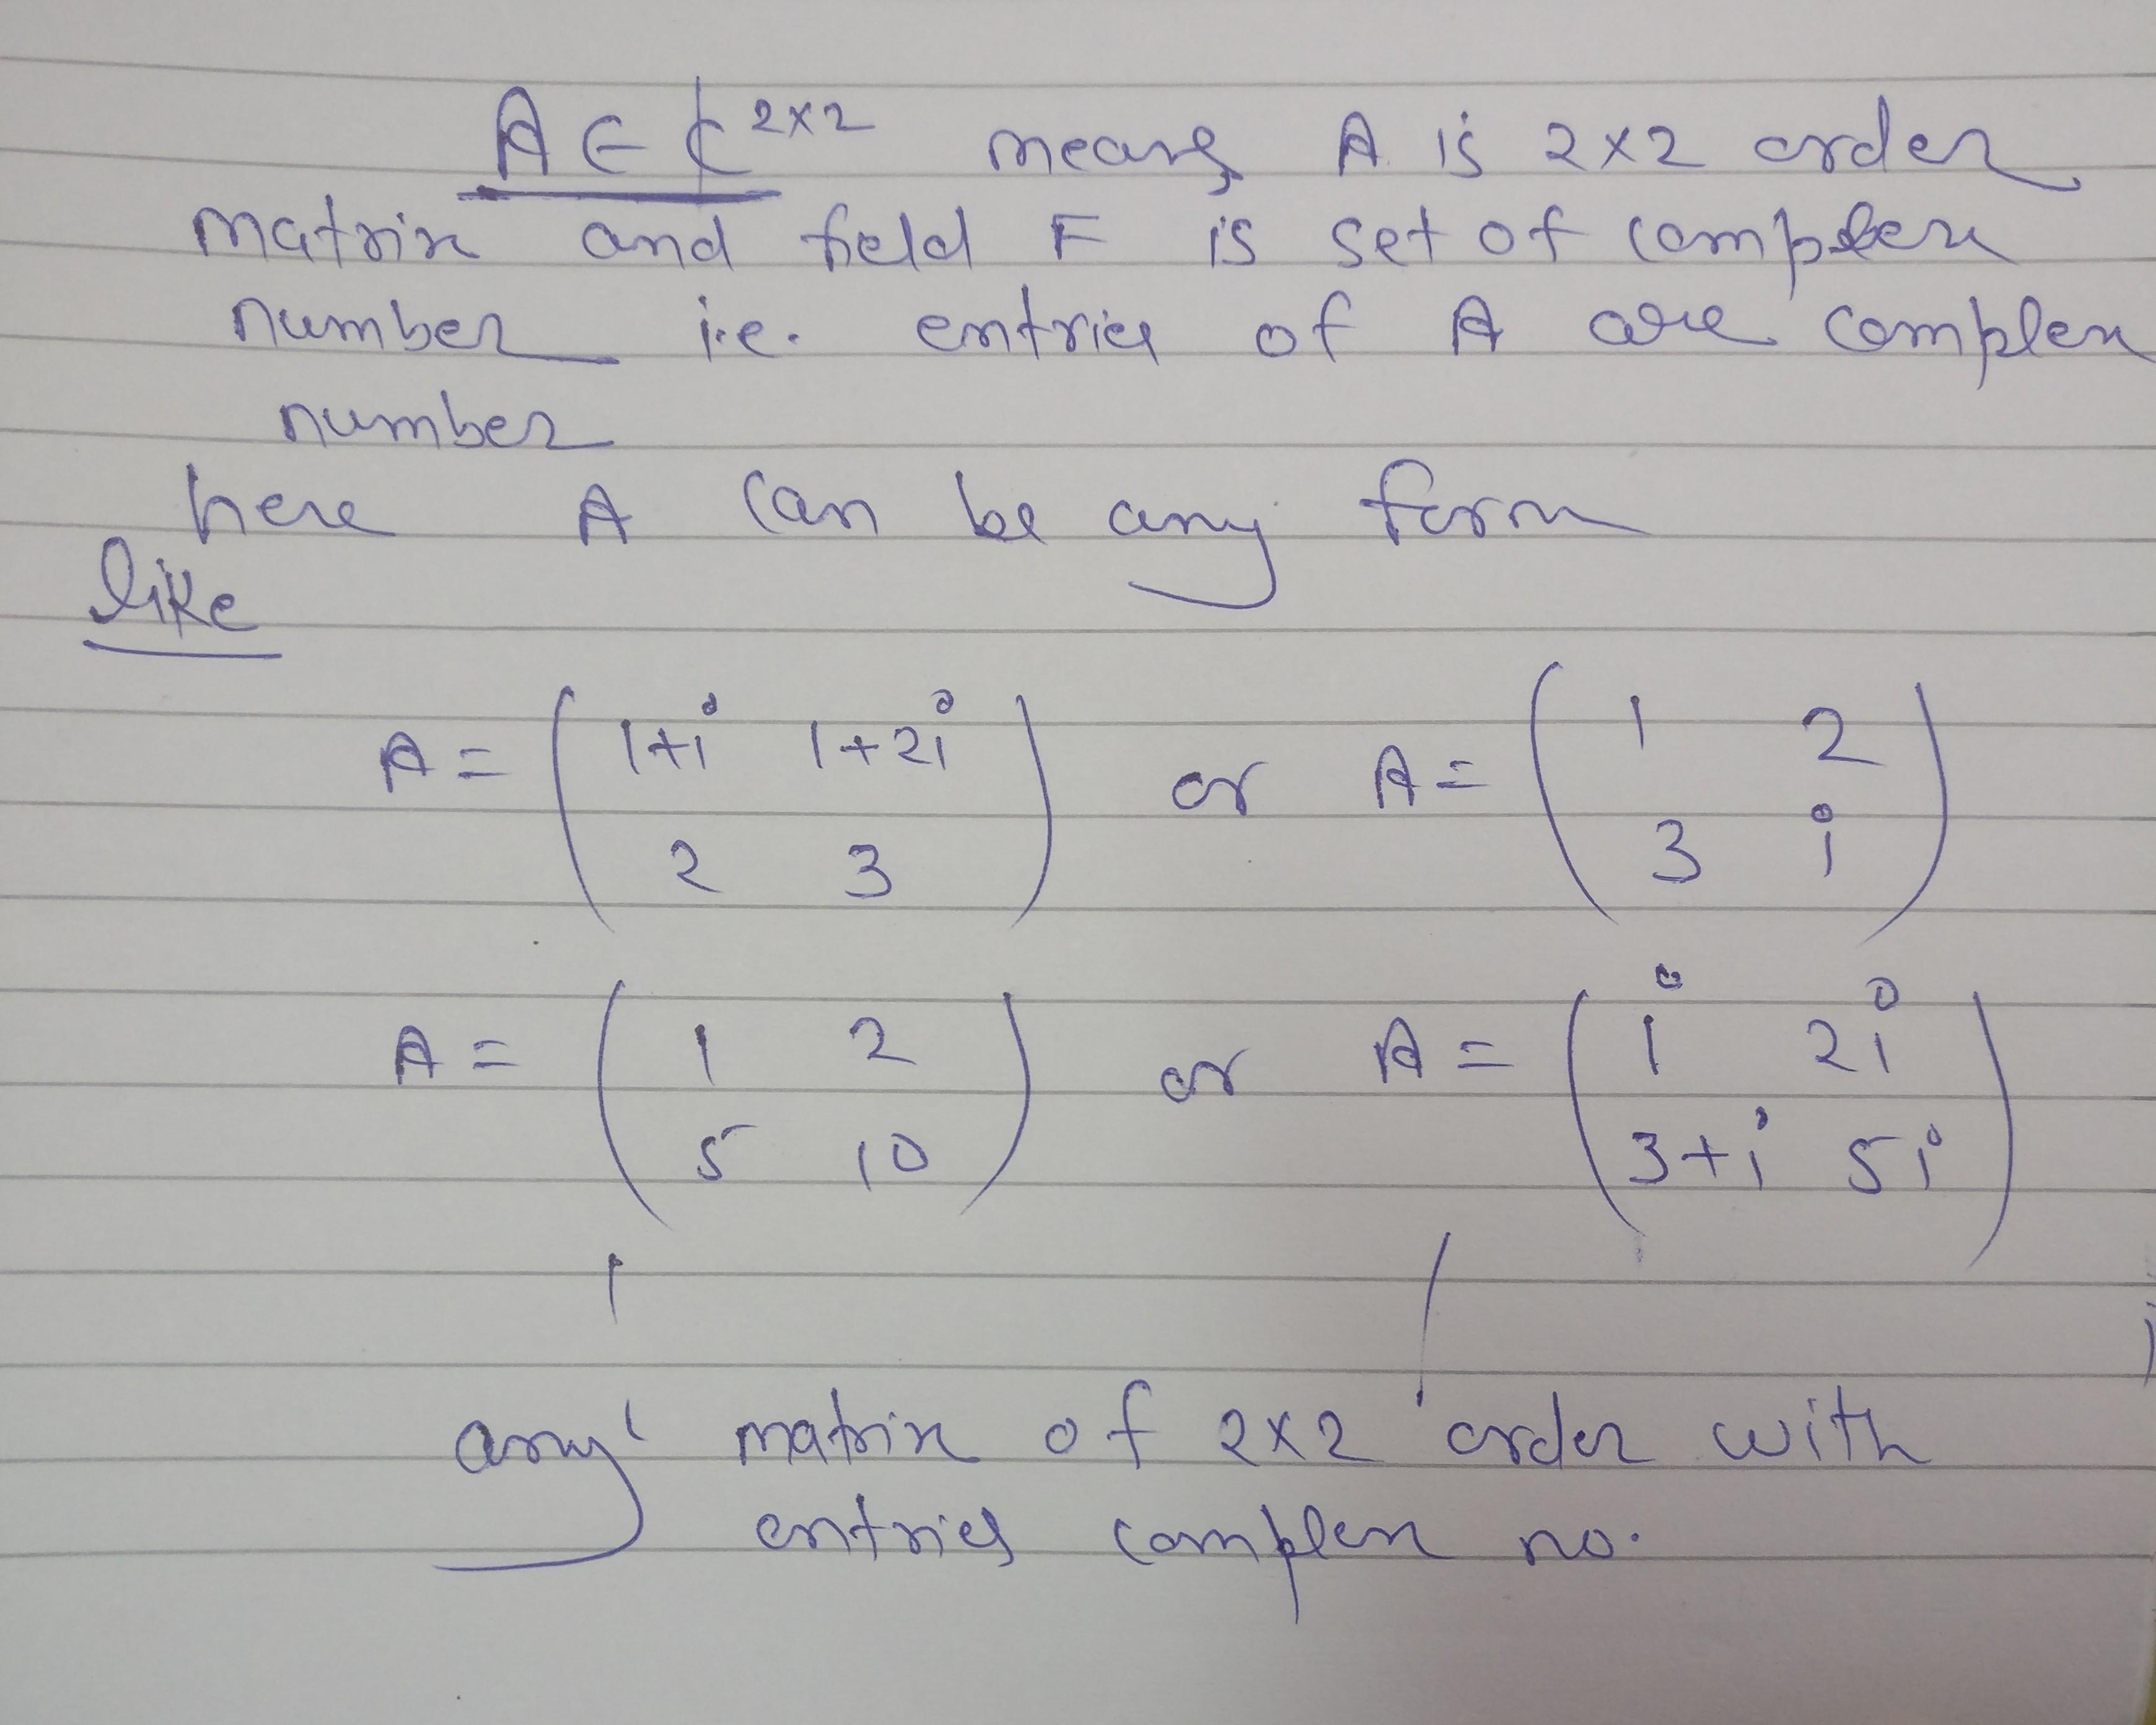 A ∈ ℂ^2×2 means A is 2×2 order
matrix and field F is set of complex
number i.e. entries of A are complex
number
here A can be any form
like
A = ( 1+i 1+2i ; 2 3 ) or A = ( 1 2 ; 3 i )
A = ( 1 2 ; 5 10 ) or A = ( i 2i ; 3+i 5i )
any matrix of 2×2 order with
entries complex no.